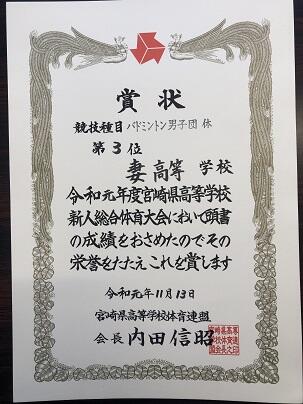 賞状
競技種目 バドミントン男子団体
第3位
妻高等学校
令和元年度宮崎県高等学校
新人総合体育大会において頭書
の成績をおさめたのでその
栄誉をたたえこれを賞します
令和元年11月13日
宮崎県高等学校体育連盟
会長 内田信昭